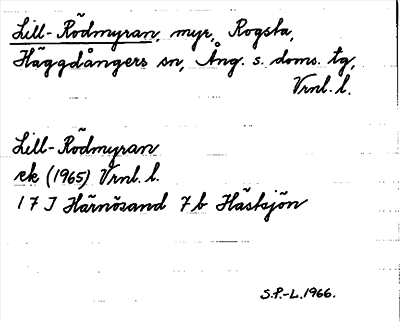 Lill-Rödmyran, myr, Rogsta,
Häggdångers sn, Ång. s. doms. tg,
Vrnl. l.
Lill-Rödmyran
ek (1965) Vrnl. l.
17 J Härnösand 7 b Hästsjön
S.P.-L. 1966.